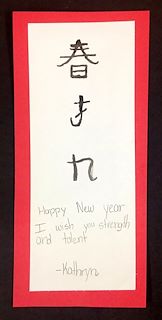 春
才
力
Happy New year
I wish you strength
and talent
-Kathryn